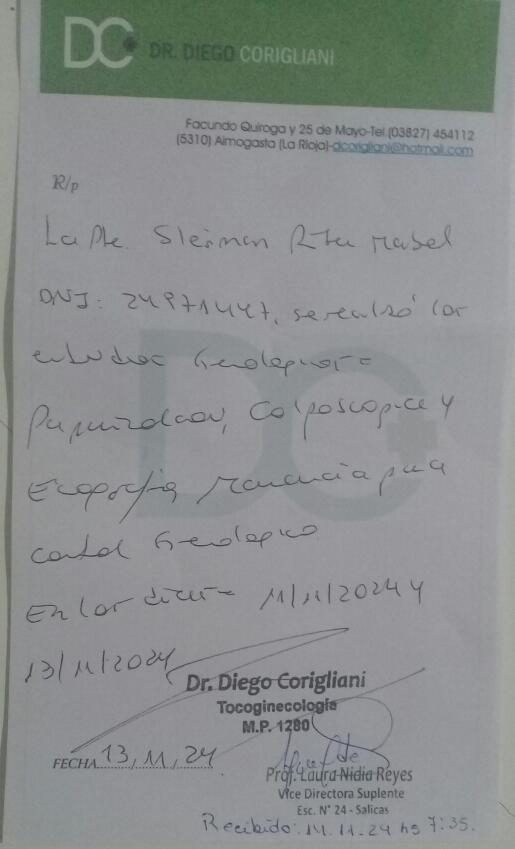 DC DR. DIEGO CORIGLIANI
Facundo Quiroga y 25 de Mayo-Tel.(03827) 454112
(5310) Aimogasta (La Rioja)-dcorigliani@hotmail.com
R/p
La Pte. Sleiman Rita Mabel
DNI: 24971447, se realizó los
estudios Ginecologicos
Papanicolaou, Colposcopia y
Ecografia Mamaria para
control Ginecologico
En los dias 11/11/2024 y
13/11/2024
Dr. Diego Corigliani
Tocoginecología
M.P. 1280
FECHA 13, 11, 24
Prof. Laura Nidia Reyes
Vice Directora Suplente
Esc. N° 24 - Salicas
Recibido: 14.11.24 hs 7:35.